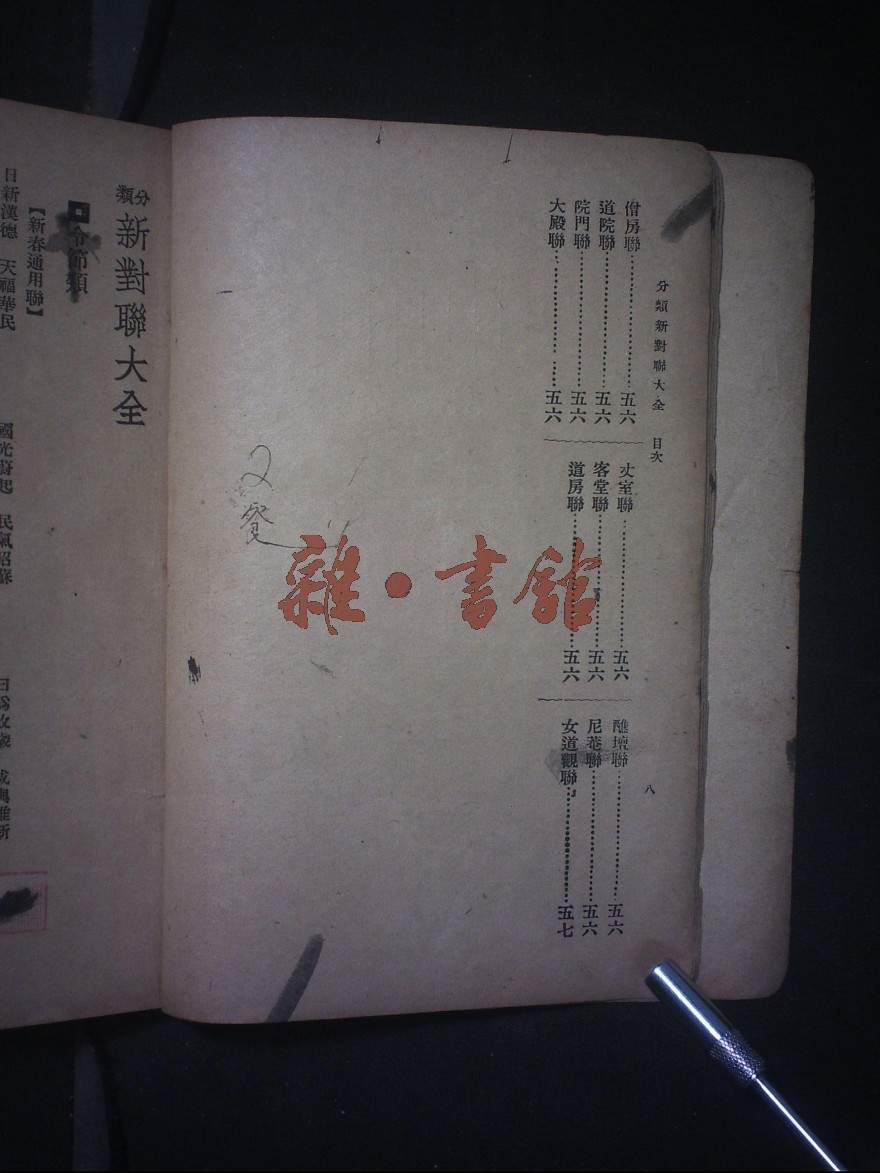 分類新對聯大全 目次 八
僧房聯……五六
道院聯……五六
院門聯……五六
大殿聯……五六
丈室聯……五六
客堂聯……五六
道房聯……五六
醮壇聯……五六
尼菴聯……五六
女道觀聯……五七
雜·書館
分類 新對聯大全
令節類
【新春通用聯】
日新漢德 天福華民
國光蔚起 民氣昭蘇